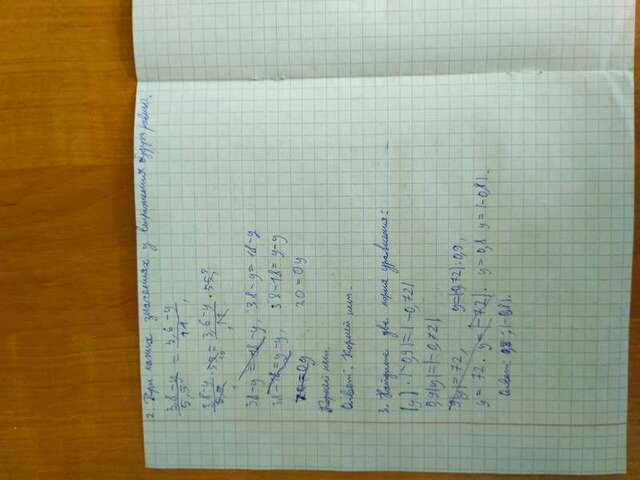 2. При каких значениях y выражения будут равны.
3,8-y / 5,5 = 3,6-y / 11,
3,8-y / 5,5 · 55 = 3,6-y / 11 · 55
38-y = 18-y 38-y = 18-y
38-18 = y-y, 38-18 = y-y
20 = 0y 20 = 0y
Корней нет.
Ответ: Корней нет.
3. Найдите два корня уравнения:
|y| · |-0,9| = |-0,72|
0,9|y| = |-0,72|
9|y| = 72, y = |0,72| : 0,9,
y = 72. y = |-72|. y = 0,8 y = |-0,8|.
Ответ: 0,8; |-0,8|.